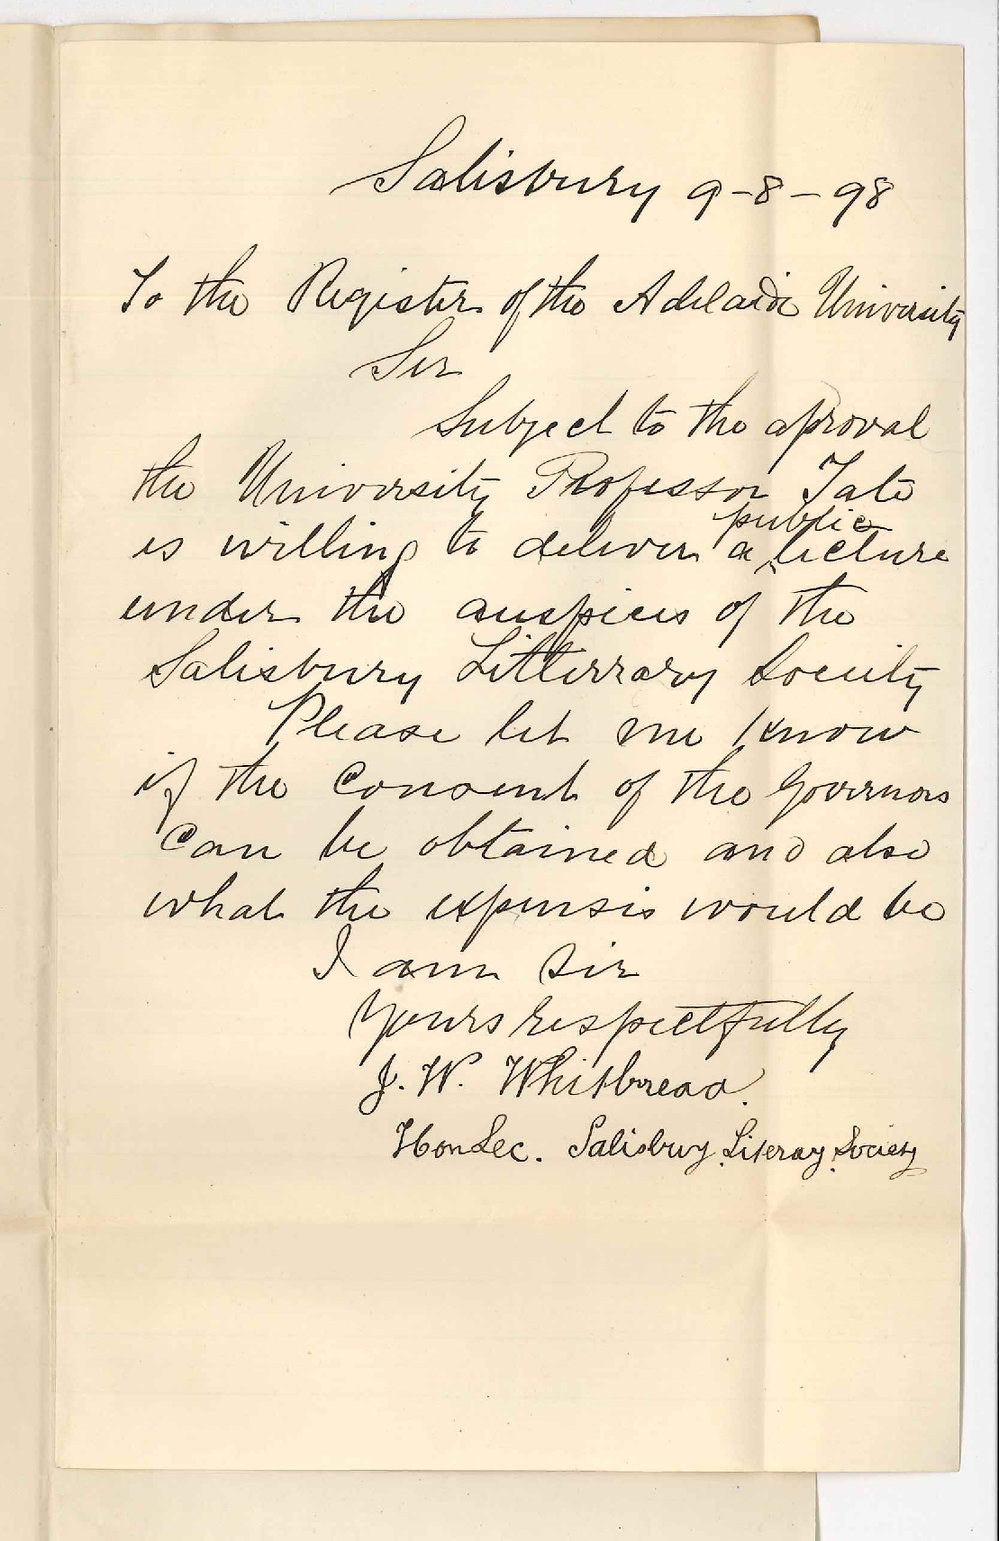 Salisbury 9-8-98
To the Register of the Adelaide University
Sir
Subject to the aproval
the University Professor Tate
is willing to deliver a public lecture
under the auspices of the
Salisbury Litterrary Society
Please let me know
if the consent of the Governors
can be obtained and also
what the expenses would be
I am Sir
Yours respectfully
J. W. Whitbread.
Hon Sec. Salisbury Literary Society